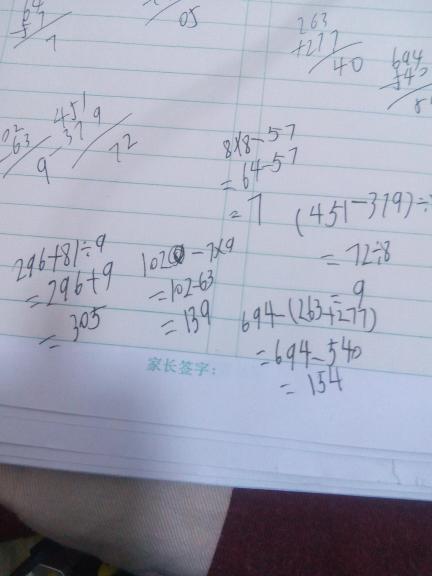 64
57
7
05
263
+277
40
694
540
63
9
451
379
72
8×8-57
=64-57
=7
(451-379)÷
=72÷8
=9
296+81÷9
=296+9
=305
102-7×9
=102-63
=139
694-(263+277)
=694-540
=154
家长签字: